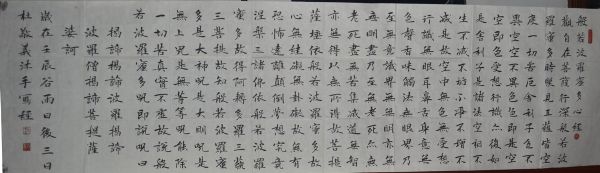 般若波羅蜜多心經
觀自在菩薩行深般若波
羅蜜多時照見五蘊皆空
度一切苦厄舍利子色不
異空空不異色色即是空
空即是色受想行識亦復如
是舍利子是諸法空相不
生不滅不垢不淨不增不
減是故空中無色無受想
行識無眼耳鼻舌身意無
色聲香味觸法無眼界乃
至無意識界無無明亦無
無明盡乃至無老死亦無
老死盡無苦集滅道無智
亦無得以無所得故菩提
薩埵依般若波羅蜜多故
心無罣礙無罣礙故無有
恐怖遠離顛倒夢想究竟
涅槃三世諸佛依般若波羅
蜜多故得阿耨多羅三藐
三菩提故知般若波羅蜜
多是大神咒是大明咒是
無上咒是無等等咒能除
一切苦真實不虛故說般
若波羅蜜多咒即說咒曰
揭諦揭諦波羅揭諦
波羅僧揭諦菩提薩
婆訶
歲在壬辰谷雨日後三日
杜敬義沐手寫經